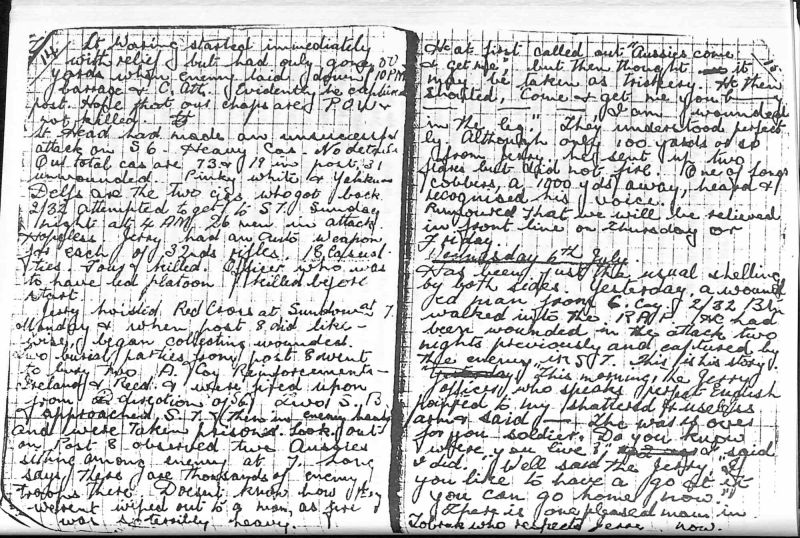 14
Lt Waring started immediately
with relief but had only gone 500
yards when enemy laid down 10 PM
barrage & C. Att. Evidently he captured
post. Hope that our chaps are P.O.W &
not killed.
Lt Head had made an unsuccessful
attack on S6. Heavy Cas. No details
Our total cas are 73 & 19 in post, 31
unwounded. Pinky White &
Delfs are the two who got back.
2/32 attempted to get to S7. Sunday
night at 4 AM 26 men in attack
Hopeless. Jerry had an auto weapon
for each of 32nds rifles. 18 Casual-
ties. Four killed. Officer who was
to have led platoon killed before
start.
Jerry hoisted Red Cross at Sundown at 7.
Monday & when post 8 did like-
wise, began collecting wounded.
Two burial parties from post 8 went
to bury two A. Coy Reinforcements -
Ireland & Reed. & were fired upon
from directions of S6. Two S.B.
approached S.7 & then in enemy hands
and were taken prisoner. Look out
on Post 8 observed two Aussies
sitting among enemy at 7.
says there are thousands of enemy
troops there. Doesnt know how they
werent wiped out to a man, as fire
was so terribly heavy.
15
He at first called out "Aussies come
& get me" but then thought it
may be taken as trickery. He then
shouted, "Come & get me you b
I am wounded
in the leg." They understood perfect-
ly. Although only 100 yards or so
from Jerry, he sent up two
flares but did not fire. One of
cobbers, a 1000 yds away, heard &
recognised his voice.
Rumoured that we will be relieved
in front line on Thursday or
Friday.
Wednesday 6th
Has been just the usual shelling
by both sides. Yesterday, a wound-
ed man from C. Coy 2/32 Btn
walked into the R.A.P. He had
been wounded in the attack two
nights previously and captured by
the enemy in S7. This is his story.
"This morning, the Jerry
officer, who speaks perfect English
pointed to my shattered & useless
arm & said — The war is over
for you soldier. Do you know
where you live?" I said
I did. "Well said the Jerry, "If
you like to have a go at it
you can go home now."
There is one pleased man in
Tobruk who respects Jerry now.